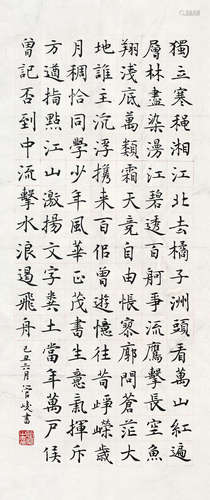 獨立寒穐湘江北去橘子洲頭看萬山紅遍
層林盡染漫江碧透百舸爭流鷹擊長空魚
翔淺底萬類霜天競自由悵寥廓問蒼茫大
地誰主沉浮攜來百侶曾遊憶往昔崢嶸歲
月稠恰同學少年風華正茂書生意氣揮斥
方遒指點江山激揚文字糞土當年萬戶侯
曾記否到中流擊水浪遏飛舟
己丑六月管峻書